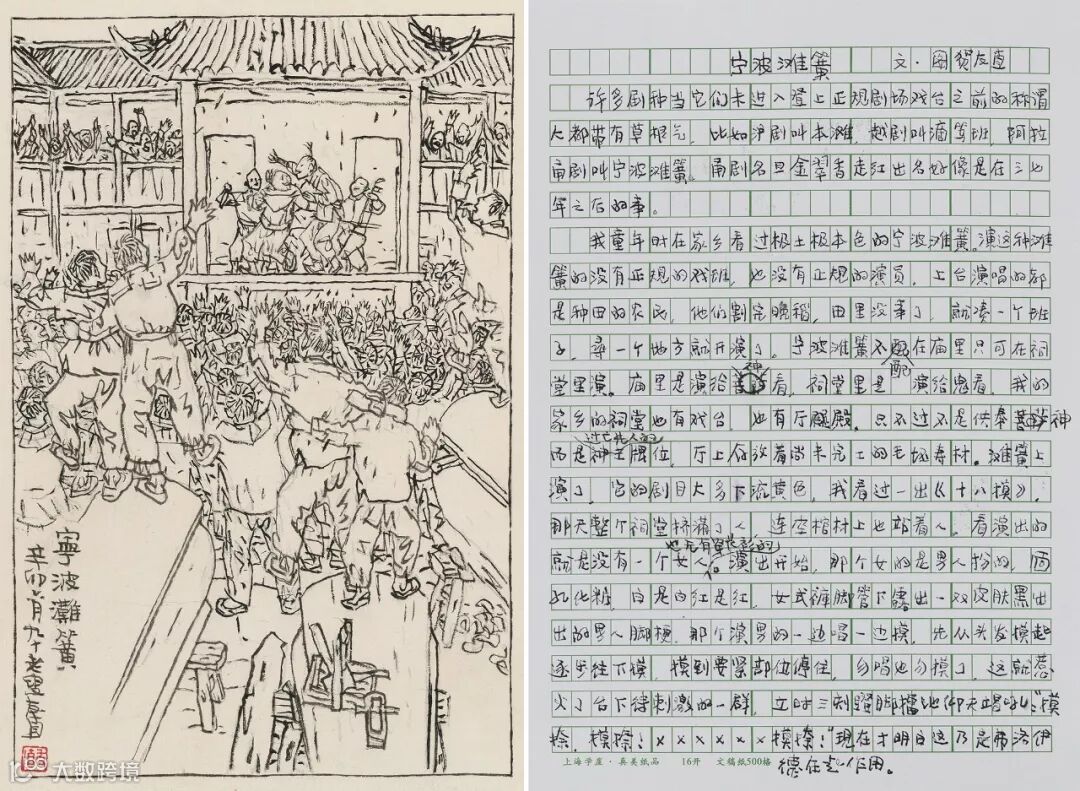 寧波灘簧
辛卯六月九十老叟友直
宁波滩簧 文·图贺友直
许多剧种当它们未进入登上正规剧场戏台之前的称谓
大都带有草根气。比如沪剧叫本滩,越剧叫滴笃班,阿拉
甬剧叫宁波滩簧。甬剧名旦金翠香走红出名好像是在三七
年之后的事。
我童年时在家乡看过极土极本色的宁波滩簧。演这种滩
簧的没有正规的戏班,也没有正规的演员,上台演唱的都
是种田的农民,他们割完晚稻,田里没事了,就凑一个班
子,寻一个地方就开演了。宁波滩簧不配在庙里只可在祠
堂里演。庙里是演给神看,祠堂里是演给鬼看。我的
家乡的祠堂也有戏台,也有厅殿。只不过不是供奉神
而是过亡先人的牌位,厅上存放着尚未完工的毛坯寿材。滩簧上
演了,它的剧目大多下流黄色,我看过一出《十八摸》,
那天整个祠堂挤满了人,连空棺材上也站着人。看演出的
就是没有一个女人,演出开始,那个女的是男人扮的,面
孔化妆,白是白红是红,女式裤脚管下露出一双皮肤黑出
出的男人脚梗。那个演男的一边唱一边摸,先从头发摸起
逐步往下摸,摸到要紧部位停住,勿唱也勿摸了,这就惹
火了台下待刺激的一群,立时三刻蹬脚擂地仰天喝吼:“摸
捺,摸捺!××××××摸捺!”现在才明白这乃是弗洛伊
德在起作用。
上海学座·真美纸品 16开 文稿纸500格
大数跨境